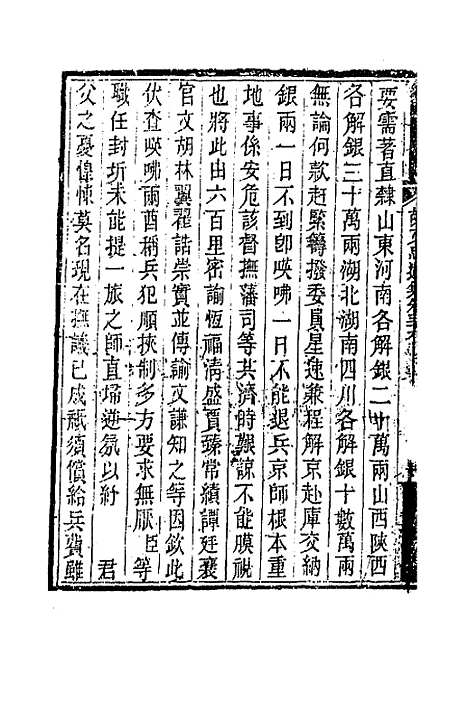 要需著直隸山東河南各解銀二十萬兩山西陝西
各解銀三十萬兩湖北湖南四川各解銀十數萬兩
無論何款趕緊籌撥委員星速兼程解京赴庫交納
銀兩一日不到卽𠸄咈一日不能退兵京師根本重
地事係安危該督撫藩司等共濟時艱諒不能膜視
也將此由六百里密諭恆福淸盛賈臻常績譚廷襄
官文胡林翼翟誥崇實並傳諭文謙知之等因欽此
伏查𠸄咈兩酋稱兵犯順挾制多方要求無厭臣等
職任封圻未能提一旅之師直埽逆氛以紓　　君
父之憂惶悚莫名現在撫議已成祇須償給兵費雖